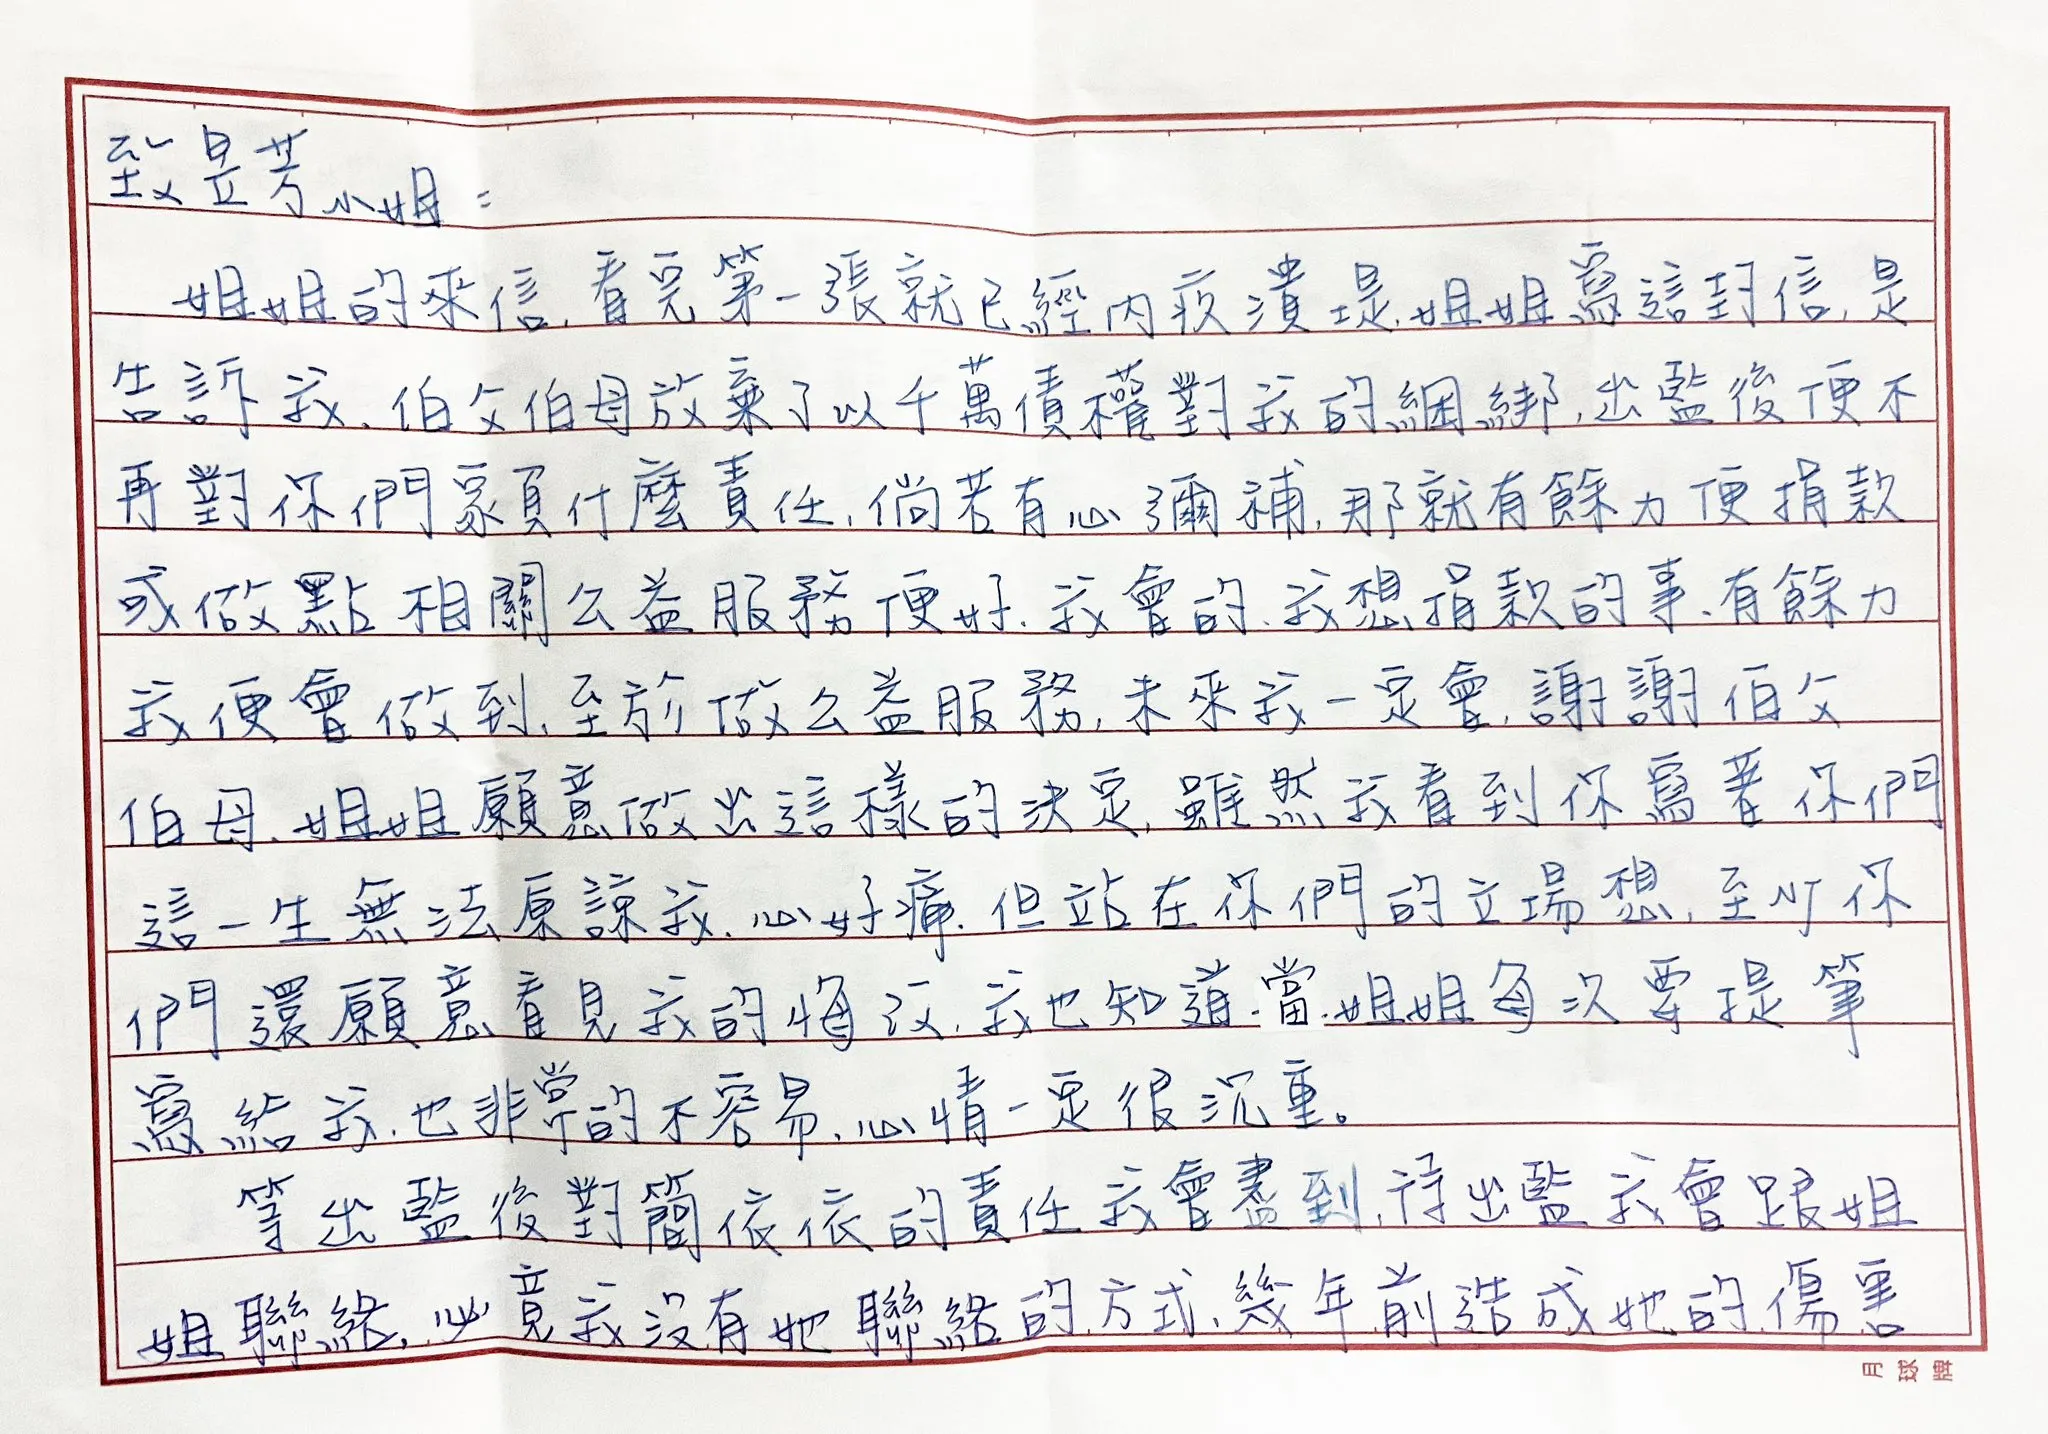 致昱芳小姐：
姐姐的來信，看完第一張就已經內疚潰堤，姐姐寫這封信，是
告訴我，伯父伯母放棄了以千萬債權對我的綑綁，出監後便不
再對你們家負什麼責任，倘若有心彌補，那就有餘力便捐款
或做點相關公益服務便好，我會的，我想捐款的事，有餘力
我便會做到，至於做公益服務，未來我一定會，謝謝伯父
伯母、姐姐願意做出這樣的決定，雖然我看到你寫著你們
這一生無法原諒我，心好痛，但站在你們的立場想，至少你
們還願意看見我的悔改，我也知道，當，姐姐每次要提筆
寫給我，也非常的不容易，心情一定很沉重。
等出監後對簡依依的責任我會盡到，待出監我會跟姐
姐聯絡，必竟我沒有她聯絡的方式，幾年前造成她的傷害
月球牌